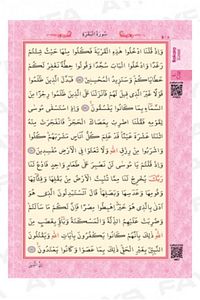 سُورَةُ الْبَقَرَةِ
وَإِذْ قُلْنَا ادْخُلُوا هَٰذِهِ الْقَرْيَةَ فَكُلُوا مِنْهَا حَيْثُ شِئْتُمْ
رَغَدًا وَادْخُلُوا الْبَابَ سُجَّدًا وَقُولُوا حِطَّةٌ نَغْفِرْ لَكُمْ
خَطَايَاكُمْ وَسَنَزِيدُ الْمُحْسِنِينَ فَبَدَّلَ الَّذِينَ ظَلَمُوا
قَوْلًا غَيْرَ الَّذِي قِيلَ لَهُمْ فَأَنْزَلْنَا عَلَى الَّذِينَ ظَلَمُوا رِجْزًا مِنَ
السَّمَاءِ بِمَا كَانُوا يَفْسُقُونَ وَإِذِ اسْتَسْقَىٰ مُوسَىٰ
لِقَوْمِهِ فَقُلْنَا اضْرِبْ بِعَصَاكَ الْحَجَرَ فَانْفَجَرَتْ مِنْهُ
اثْنَتَا عَشْرَةَ عَيْنًا قَدْ عَلِمَ كُلُّ أُنَاسٍ مَشْرَبَهُمْ كُلُوا
وَاشْرَبُوا مِنْ رِزْقِ اللهِ وَلَا تَعْثَوْا فِي الْأَرْضِ مُفْسِدِينَ
وَإِذْ قُلْتُمْ يَا مُوسَىٰ لَنْ نَصْبِرَ عَلَىٰ طَعَامٍ وَاحِدٍ فَادْعُ لَنَا
رَبَّكَ يُخْرِجْ لَنَا مِمَّا تُنْبِتُ الْأَرْضُ مِنْ بَقْلِهَا وَقِثَّائِهَا
وَفُومِهَا وَعَدَسِهَا وَبَصَلِهَا قَالَ أَتَسْتَبْدِلُونَ الَّذِي هُوَ
أَدْنَىٰ بِالَّذِي هُوَ خَيْرٌ اهْبِطُوا مِصْرًا فَإِنَّ لَكُمْ مَا سَأَلْتُمْ
وَضُرِبَتْ عَلَيْهِمُ الذِّلَّةُ وَالْمَسْكَنَةُ وَبَاءُوا بِغَضَبٍ مِنَ
اللهِ ذَٰلِكَ بِأَنَّهُمْ كَانُوا يَكْفُرُونَ بِآيَاتِ اللهِ وَيَقْتُلُونَ
النَّبِيِّينَ بِغَيْرِ الْحَقِّ ذَٰلِكَ بِمَا عَصَوْا وَكَانُوا يَعْتَدُونَ